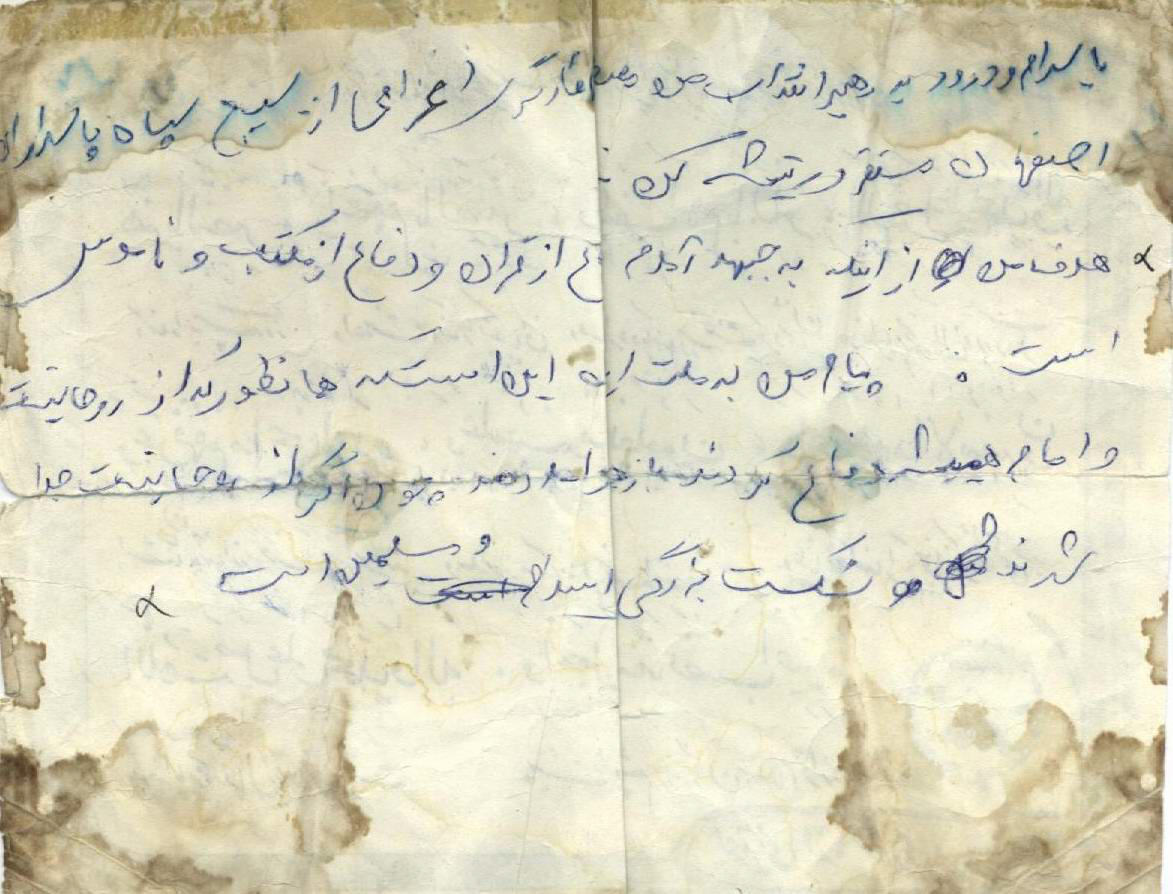 با سلام و درود به رهبر انقلاب من اعزامی از بسیج سپاه پاسداران
اصفهان مستقر در
هدف من از اینکه به جبهه آمدم از قران و دفاع از مکتب و ناموس
است . پیام من به ملت این است که همانطور که از روحانیت
و امام همیشه دفاع کردند باز هم چون اگر از روحانیت جدا
شدند شکست بزرگی اسلام و مسلمین است